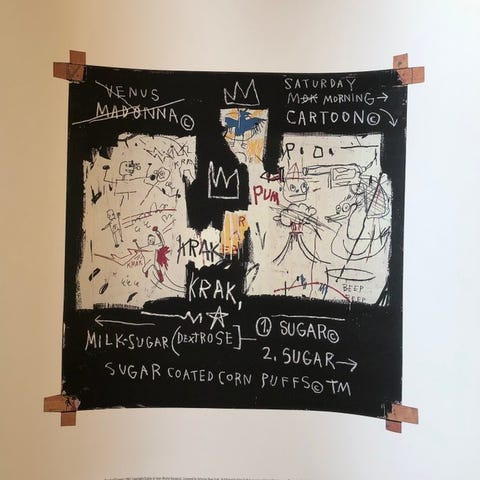 VENUS
MADONNA©
SATURDAY
MORNING→
CARTOON©
P.O.
KRAK
PUM
R
KRAK
KRAK
KRAK,
BEEP
BEEP
← 
MILK-SUGAR (DEXTROSE]
1. SUGAR©
2. SUGAR→
SUGAR COATED CORN PUFFS© TM